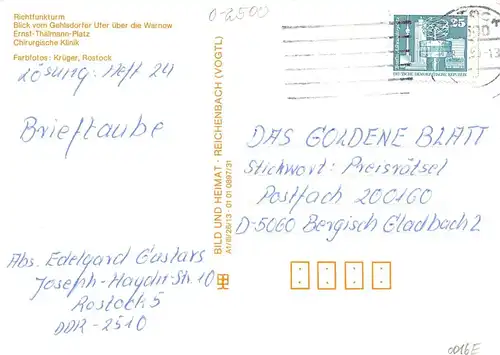 0-2500
Richtfunkturm
Blick vom Gehlsdorfer Ufer über die Warnow
Ernst-Thälmann-Platz
Chirurgische Klinik
Farbfotos: Krüger, Rostock
Lösung: Heft 24
Brieftaube
Abs. Edelgard Gustavs
Joseph-Haydn-Str. 10
Rostock 5
DDR-2510
BILD UND HEIMAT · REICHENBACH (VOGTL)
A1/III/26/13 · 01 01 0897/31
25
DEUTSCHE DEMOKRATISCHE REPUBLIK
DAS GOLDENE BLATT
Stichwort: Preisrätsel
Postfach 200160
D-5060 Bergisch Gladbach 2
0016E